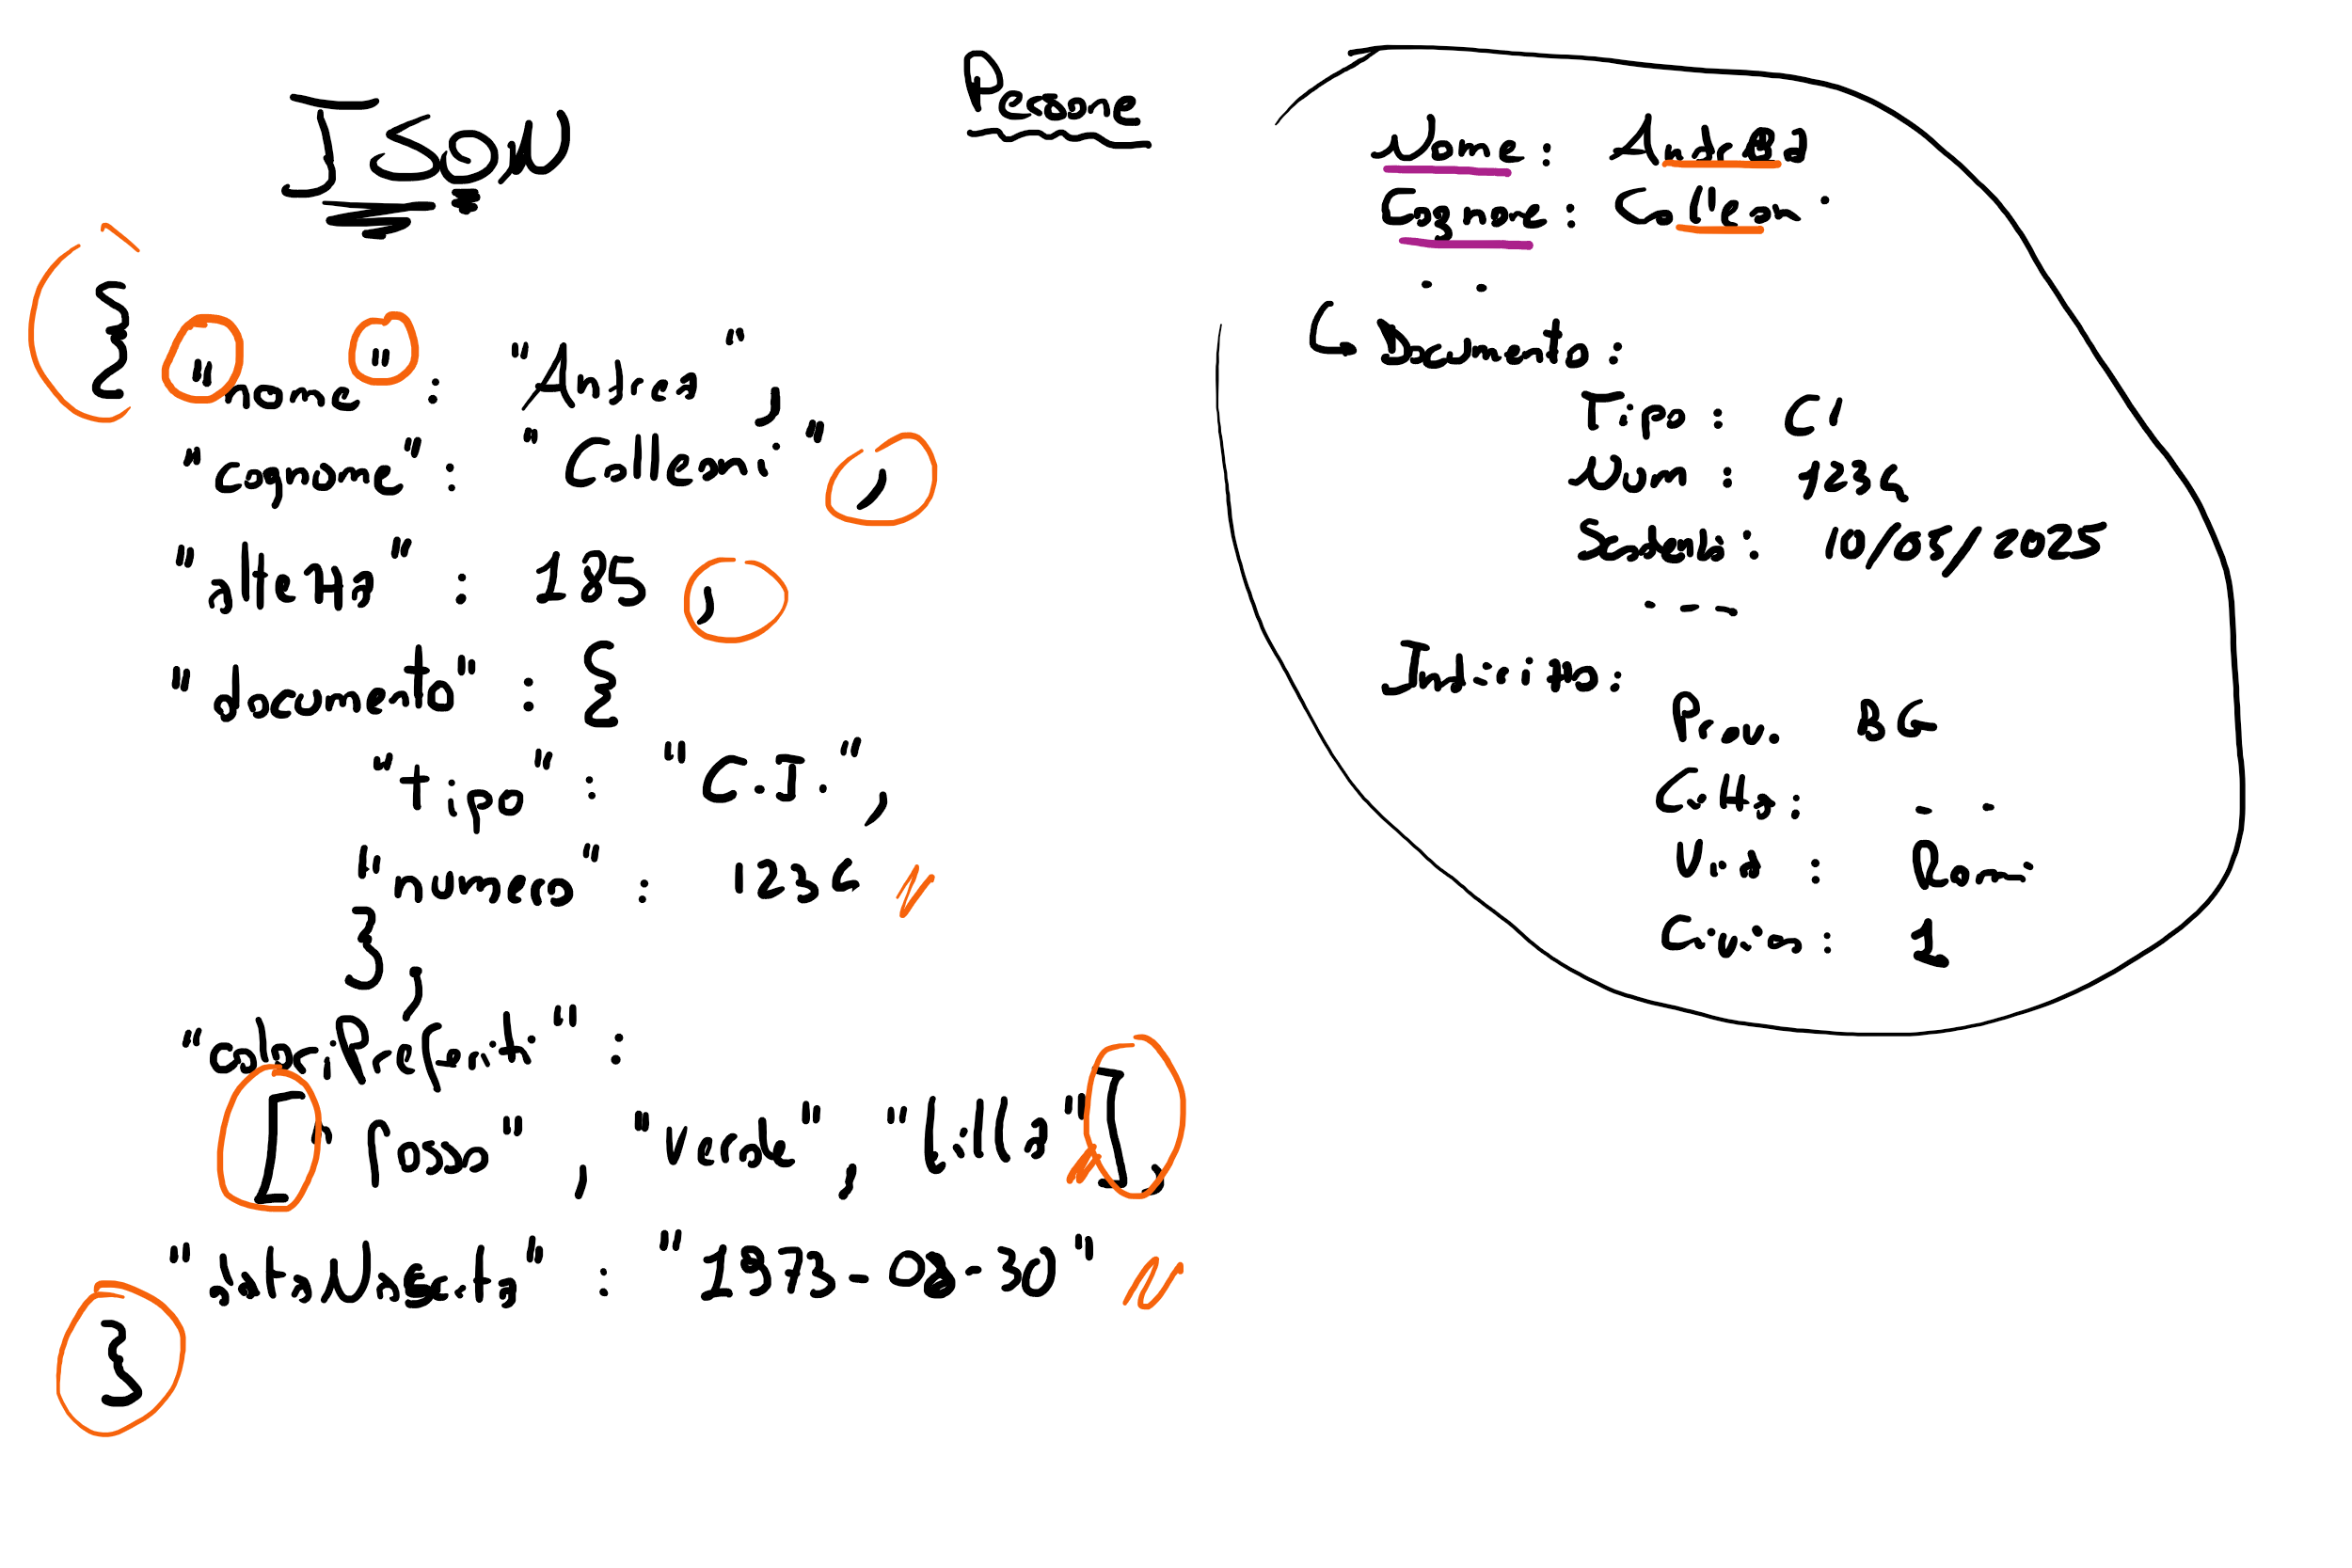 JSON
Persone
{
"nome" : "Andrea",
"cognome" : "Colleoni",
"altezza" : 185,
"documento" : {
"tipo" : "C.I.",
"numero" : 1234
},
"coloriPreferiti" :
["rosso", "verde", "lilla"],
"dataNascita" : "1973-08-30"
}
Nome : Andrea
Cognome : Colleoni
. .
Documento :
Tipo : CI
Num : 1234
Scadenza : 10/05/2025
. - -
Indirizzo :
Prov. BG
Città : . .
Via : Roma
Civico : 1